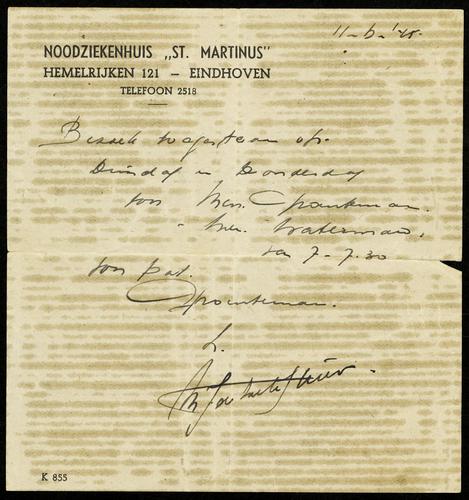 11-6-'45.
NOODZIEKENHUIS „ST. MARTINUS"
HEMELRIJKEN 121 — EINDHOVEN
TELEFOON 2518
Bezoek toegestaan op
Dinsdag en Donderdag
voor Mevr. Spankman.
- Mevr. Waterman.
van 7 - 7.30
voor pat.
K 855